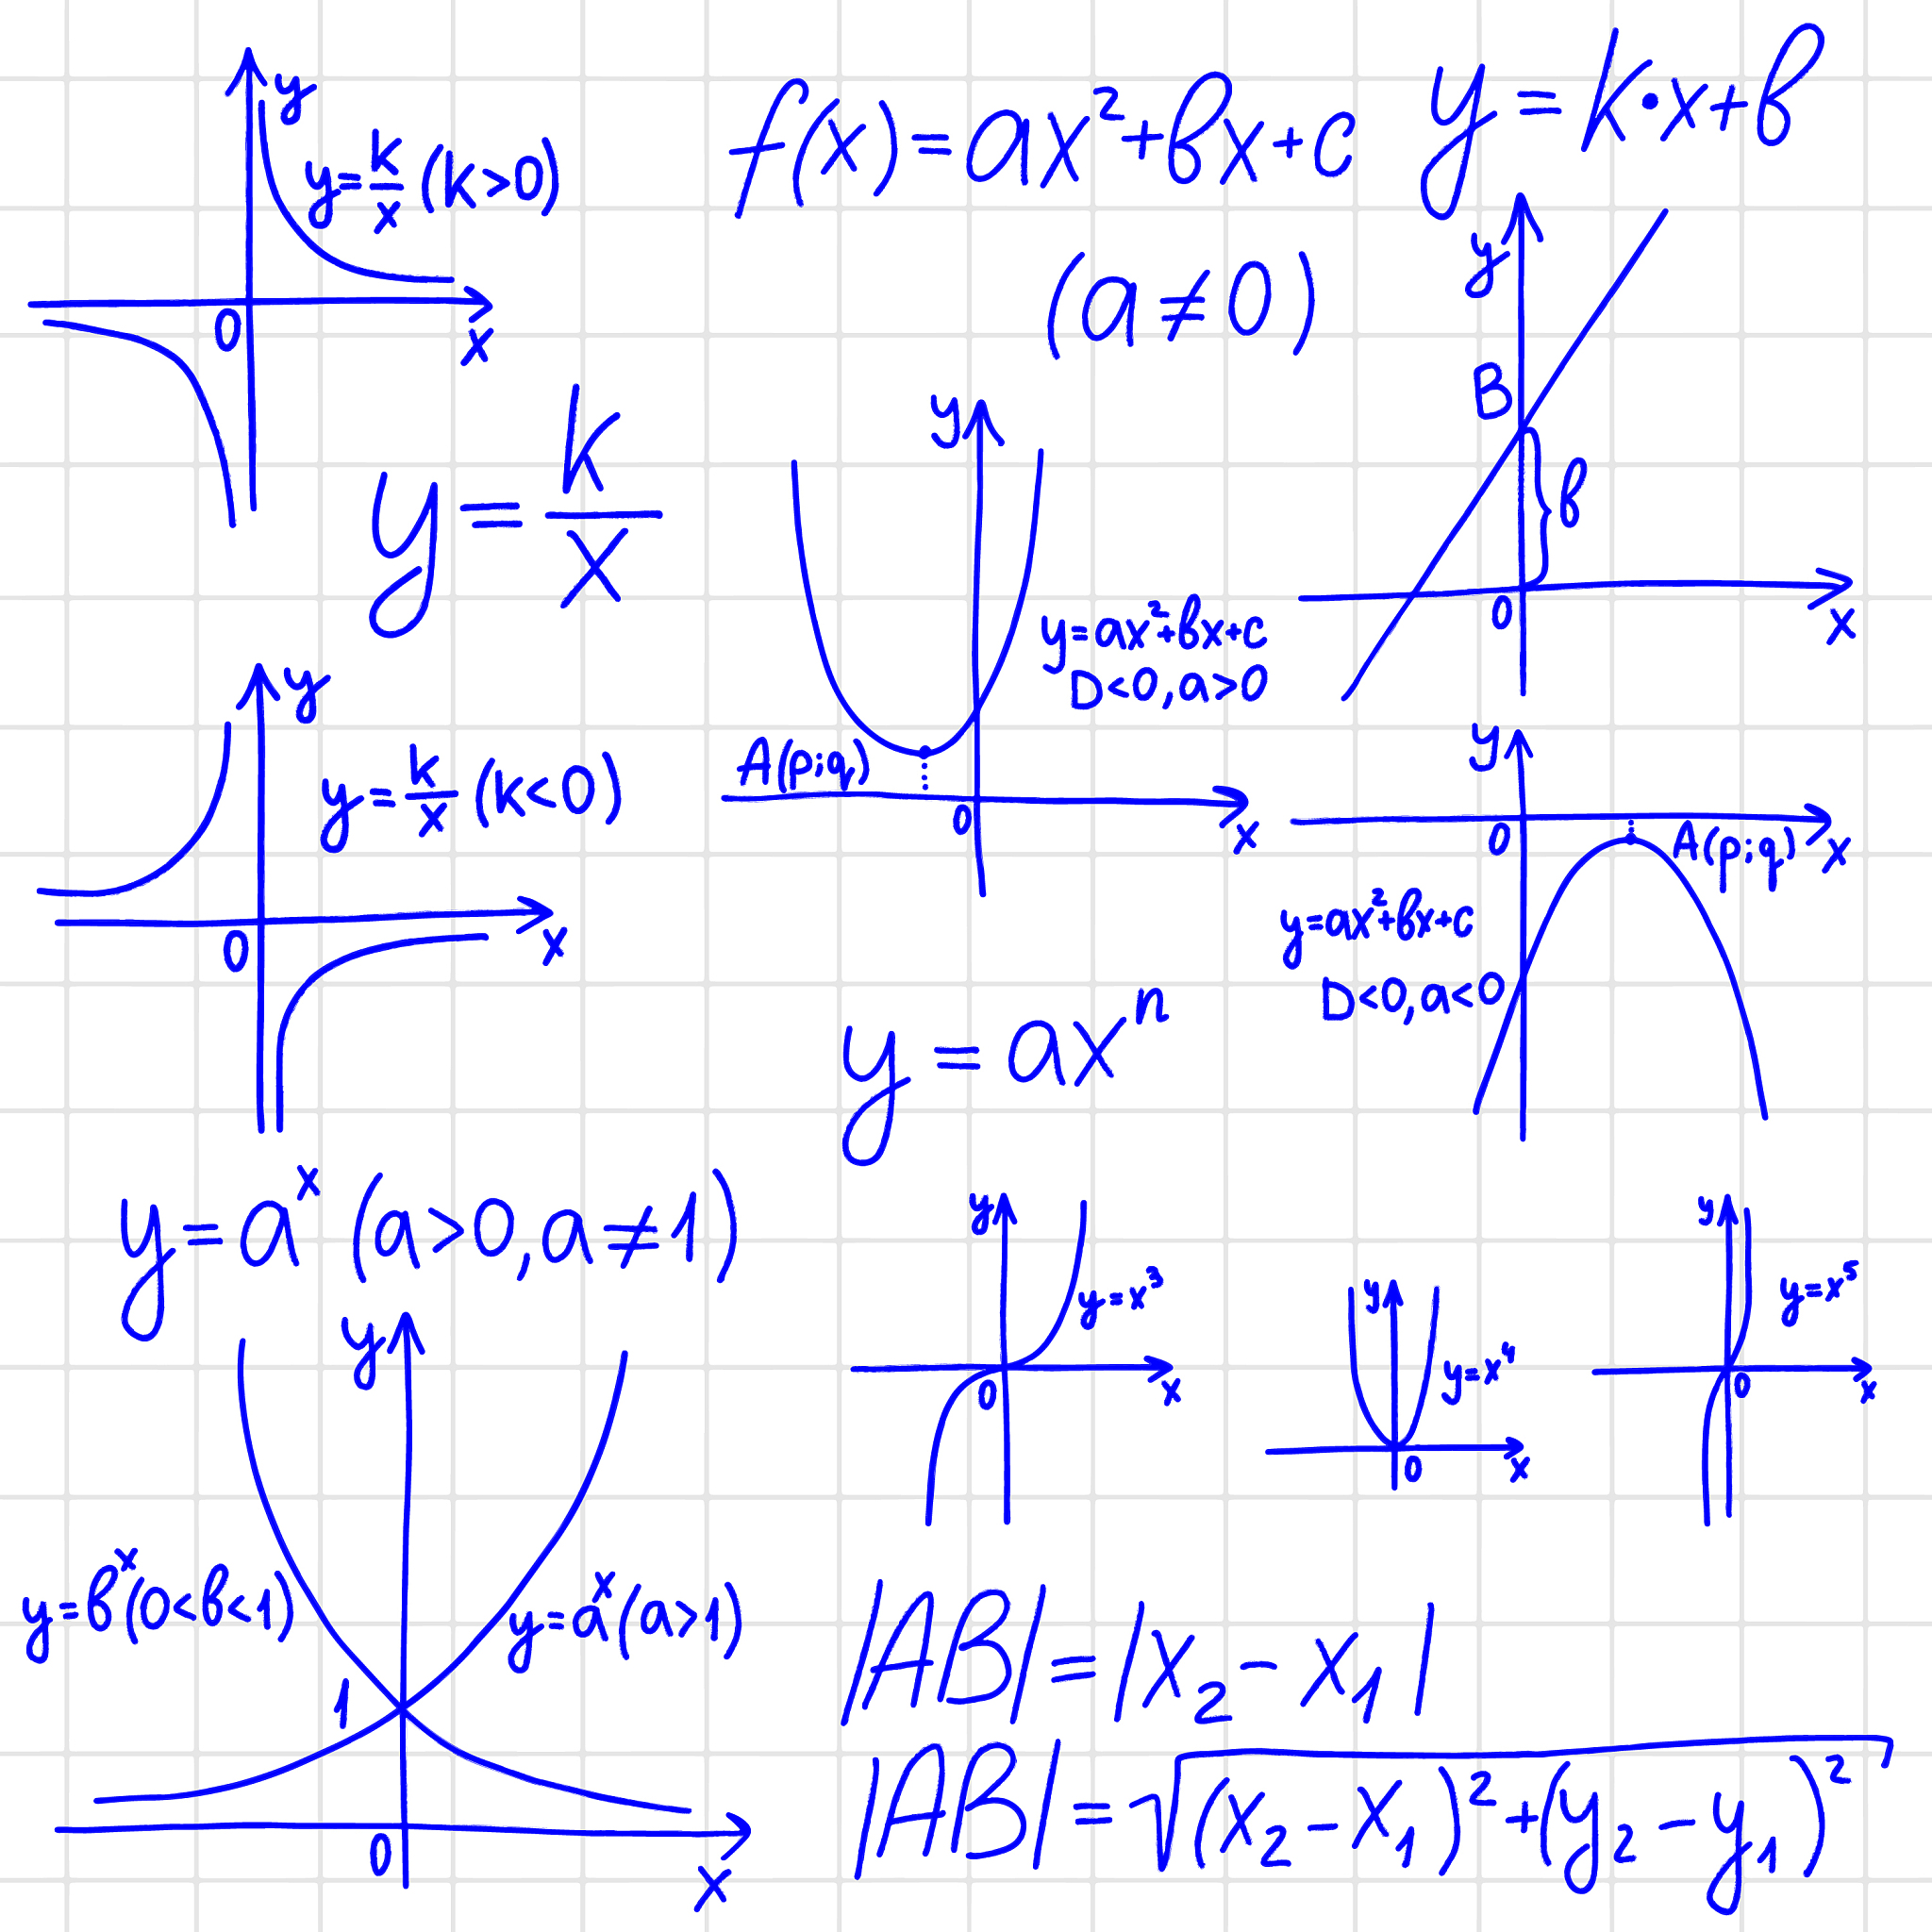 y
y=k/x (k>0)
0
x
y=k/x
f(x)=ax²+bx+c
(a≠0)
y=k·x+b
y
B
b
0
x
y
y=ax²+bx+c
D<0,a>0
A(p;q)
0
x
y
y=k/x (k<0)
0
x
y
0
A(p;q)
x
y=ax²+bx+c
D<0,a<0
y=axⁿ
y
y=x³
0
x
y
y=x⁴
0
x
y
y=x⁵
0
x
y=aˣ (a>0,a≠1)
y
y=bˣ(0<b<1)
y=aˣ(a>1)
1
0
x
|AB|=|x₂-x₁|
|AB|=√((x₂-x₁)²+(y₂-y₁)²)